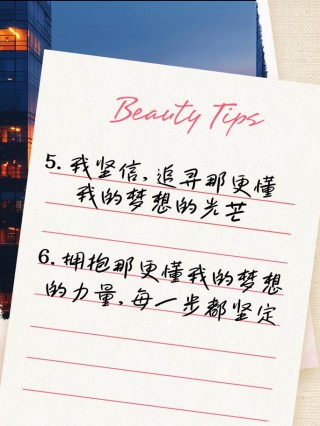 Beauty Tips
5. 我坚信,追寻那更懂
我的梦想的光芒
6. 拥抱那更懂我的梦想
的力量,每一步都坚定